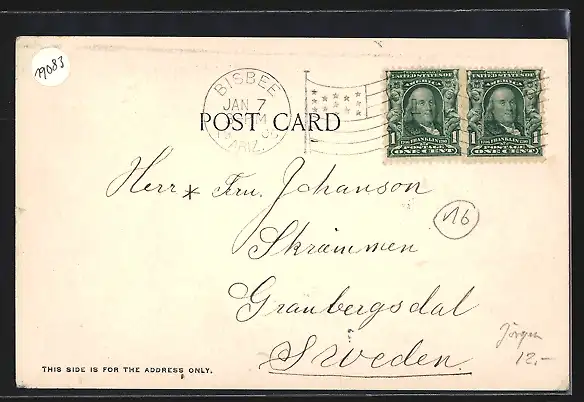 19083
BISBEE
JAN 7
ARIZ.
POST CARD
UNITED STATES OF
AMERICA
FRANKLIN
1 1
POSTAGE
ONE CENT
UNITED STATES OF
AMERICA
FRANKLIN
1 1
POSTAGE
ONE CENT
Herr * Fru. Johanson
Skrämmen
Granbergsdal
Sweden.
Jörgen
12,-
THIS SIDE IS FOR THE ADDRESS ONLY.